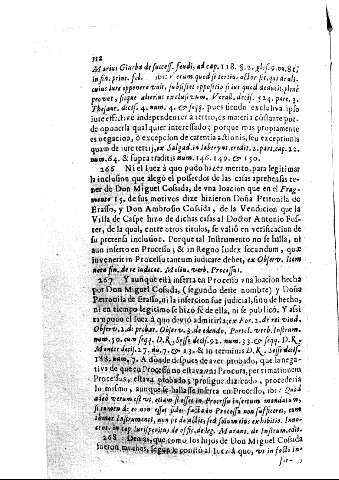 112
Marius Giurba de success. feudi, ad cap. 118. §. 2. glos. 9. nu. 86.
in fin. princ. fel. ibi: Verum quod si tertius obstet sit, qui de alicuius
iure opponere vult, subsistet oppositio si ius quod deducit, plenè
provet, sicque alterius exclusivum. Veral. decis. 524. part. 3.
Thesaur. decis. 4. num. 4. & seqq. pues siendo exclusiva ipso
iure effective independenter à tertio, es materia constante puede
oponerla qualquier interessado; porque mas propiamente
es negacion, ò excepcion de carentia actionis, seu exceptionis
quam de iure tertij, ex Salgad. in labyrint. credit. 2. part. cap. 22.
num. 64. & supra traditis num. 146. 149. & 150.
266 Ni el Iuez à quo pudo hazer merito, para legitimar
la inclusion que alegò el possedor de las casas aprehensas tener
de Don Miguel Cossada, de vna loacion que en el Fragmento
15. de sus motivos dize hizieron Doña Petronila de
Erasso, y Don Ambrosio Cossada, de la Vendicion que la
Villa de Caspe hizo de dichas casas al Doctor Antonio Foster,
de la qual, entre otros titulos, se valiò en verificacion de
su pretensa inclusion. Porque tal Instrumento no se halla, ni
aun inserto en Processo; & in Regno Iudex secundum, quæ
invenerit in Processu tantum iudicare debet, ex Observ. Item
nota fin. de re iudicat. Molin. verb. Processus.
267 Y aunque està inserta en Processo vna loacion hecha
por Don Miguel Cossada, (segundo deste nombre) y Doña
Petronila de Erasso, ni la insercion fue judicial, sino de hecho,
ni en tiempo legitimo se hizo fè de ella, ni se publicò. Y assi
tampoco el Iuez à quo deviò admitirla, ex For. 2. de rei vind.
Observ. 2. de probat. Observ. 3. de edendo, Portol. verb. Instrum.
num. 50. cum seqq. D. R. Sesse decis. 92. num. 33. & seqq. D. R.
Monter decis. 27. nu. 7. & 23. & in terminis D. R. Sesse decis.
188. num. 7. A donde despues de aver probado, que la negativa
de que en Processo no estava la Procura, per simul manens
Processus, estava probado; prosigue diziendo, procederia
lo mismo, aunque se hallasse inserta en Processo, ibi: Quod
adeò verum est vt, etiam si esset in Processu insertum mandatum,
si tamen de eo non esset fides facta in Processu non sufficeret, cum
dictum instrumentum, non possit dici, nisi solum eius exhibitio. Innocent.
in cap. Iurisperitus de offic. deleg. Marant. de Instrum. edit.
268 Demas, que como los hijos de Don Miguel Cossada
fueron muchos, segun se opositò al Iuez à quo, vt in folio in-
se- ;